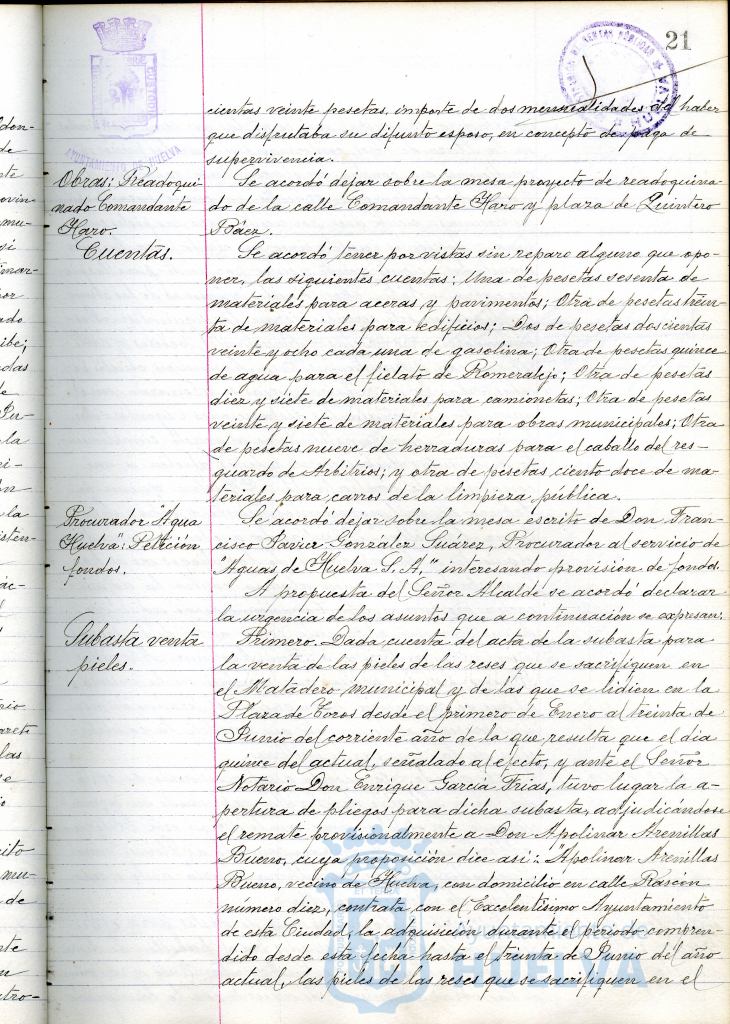 21
AYUNTAMIENTO DE HUELVA
cientas veinte pesetas, importe de dos mensualidades del haber
que disfrutaba su difunto esposo, en concepto de paga de
supervivencia.
Obras: Readoqui-
nado Comandante
Haro.
Se acordó dejar sobre la mesa proyecto de readoquina-
do de la calle Comandante Haro y plaza de Quintero
Báez.
Cuentas.
Se acordó tener por vistas sin reparo alguno que opo-
ner, las siguientes cuentas: Una de pesetas sesenta de
materiales para aceras y pavimentos; Otra de pesetas trein-
ta de materiales para edificios; Dos de pesetas doscientas
veinte y ocho cada una de gasolina; Otra de pesetas quince
de agua para el fielato de Romeralejo; Otra de pesetas
diez y siete de materiales para camionetas; Otra de pesetas
veinte y siete de materiales para obras municipales; Otra
de pesetas nueve de herraduras para el caballo del res-
guardo de Arbitrios; y otra de pesetas ciento doce de ma-
teriales para carros de la limpieza pública.
Procurador "Agua
Huelva": Petición
fondos.
Se acordó dejar sobre la mesa escrito de Don Fran-
cisco Javier González Suárez, Procurador al servicio de
"Aguas de Huelva S.A." interesando provisión de fondos.
A propuesta del Señor Alcalde se acordó declarar
la urgencia de los asuntos que a continuación se expresan:
Subasta venta
pieles.
Primero. Dada cuenta del acta de la subasta para
la venta de las pieles de las reses que se sacrifiquen en
el Matadero municipal y de las que se lidien en la
Plaza de Toros desde el primero de Enero al treinta de
Junio del corriente año de la que resulta que el día
quince del actual, señalado al efecto, y ante el Señor
Notario Don Enrique García Frias, tuvo lugar la a-
pertura de pliegos para dicha subasta, adjudicándose
el remate provisionalmente a Don Apolinar Arenillas
Bueno, cuya proposición dice así: "Apolinar Arenillas
Bueno, vecino de Huelva, con domicilio en calle Rascón
número diez, contrata con el Excelentísimo Ayuntamiento
de esta Ciudad, la adquisición durante el periodo compren-
dido desde esta fecha hasta el treinta de Junio del año
actual, las pieles de las reses que se sacrifiquen en el
HUELVA